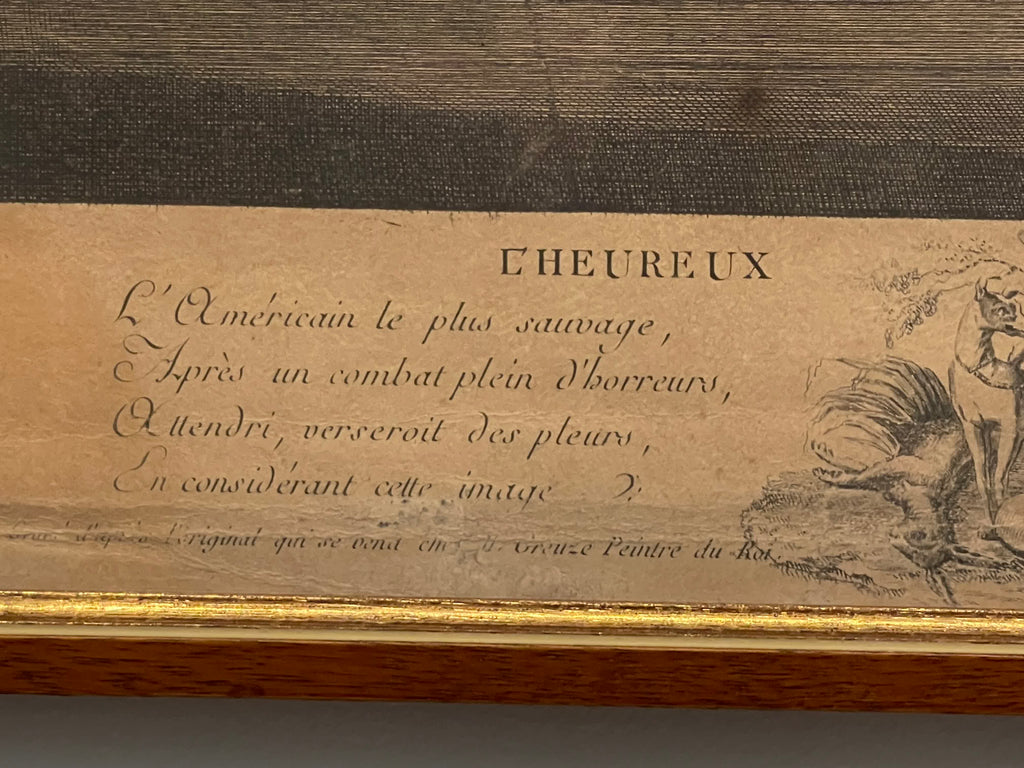 L'HEUREUX
L'Américain le plus sauvage,
Après un combat plein d'horreurs,
Attendri, verseroit des pleurs,
En considérant cette image
d'après l'original qui se vend chez M. Greuze Peintre du Roi.